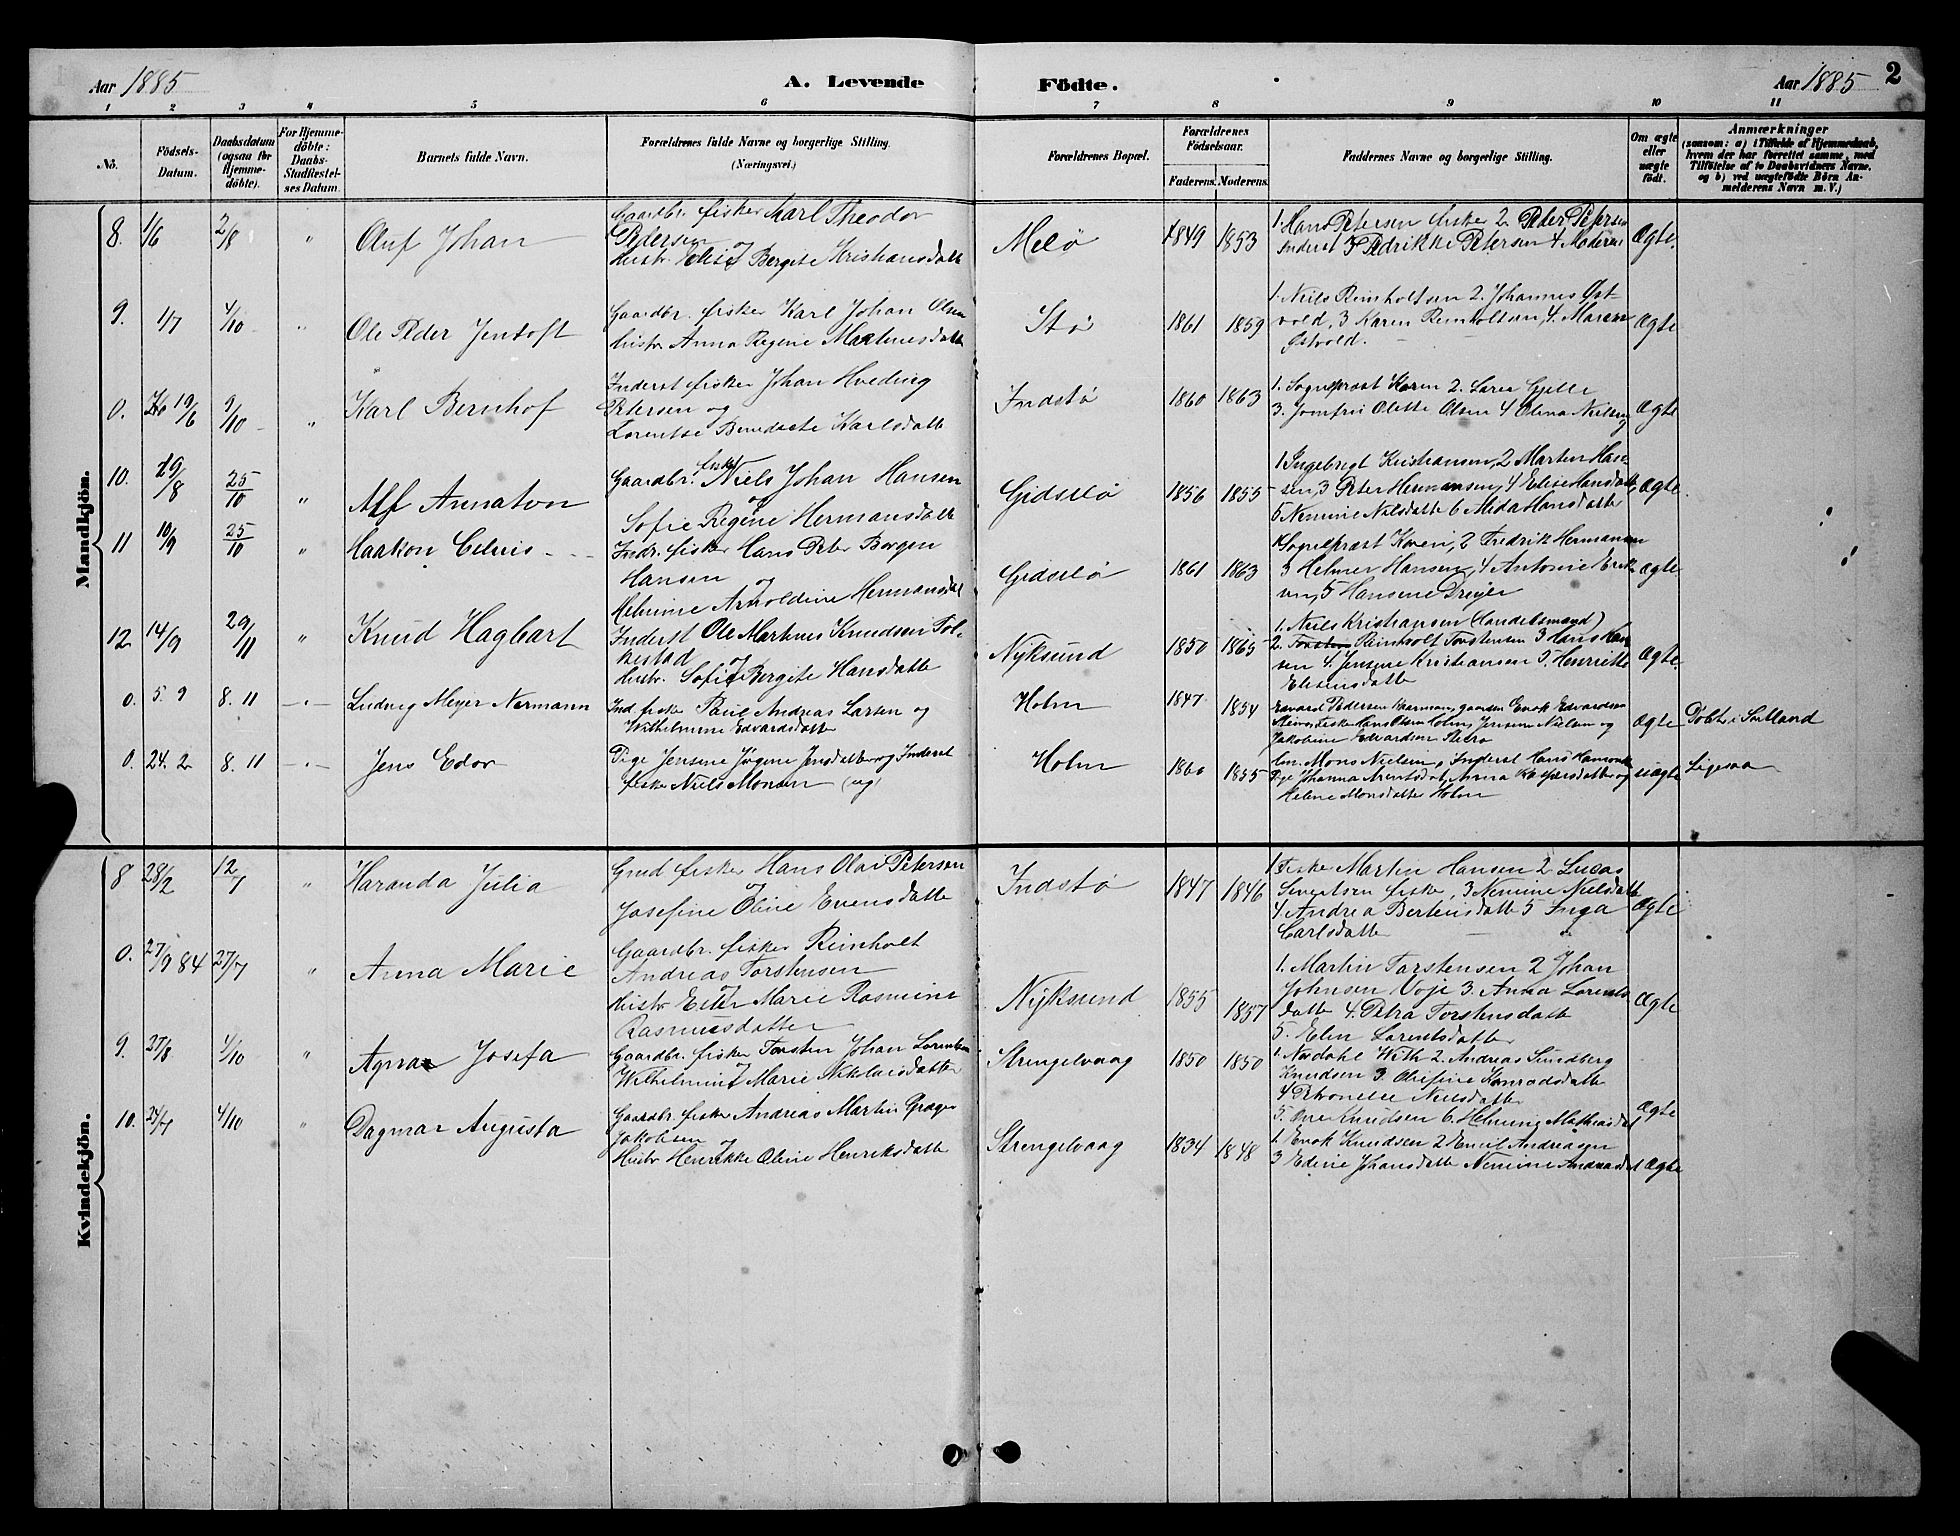 Aar 1885 A. Levende Födte. Aar 1885 2
1 2 3 4 5 6 7 8 9 10 11
No.
Födsels-
Datum.
Daabsdatum
(ogsaa for
Hjemme-
döbte).
For Hjemme-
döbte:
Daabs-
Stadfæstel-
ses Datum.
Barnets fulde Navn.
Forældrenes fulde Navne og borgerlige Stilling.
(Næringsvei.)
Forældrenes Bopæl.
Forældrenes
Födselsaar.
Faderens. Moderens.
Faddernes Navne og borgerlige Stilling.
Om ægte
eller
uægte
födt.
Anmærkninger
(saasom: a) i Tilfælde af Hjemmedaab,
hvem der har forrettet samme, med
Tilföielse af to Daabsvidners Navne,
og b) ved uægtefödte Börn An-
melderens Navn m. V.)
Mandkjön.
8. 1/6 2/8 " Oluf Johan
Gaardbr. fisker Karl Theodor
Pedersen og
Hustr. Elise Bergite Kristiansdatt
Melø 1849 1853
1. Hans Petersen fisker 2 Peter Petersen
Inderst 3 Fredrikke Petersen 4 Moderen
Ægte.
9. 1/7 4/10 " Ole Peder Jentoft
Gaardbr. fisker Karl Johan Olsen
hustr Anna Regine Martinesdatt
Stø 1861 1859
1. Niels Reinholtsen 2. Johannes Øst-
vold, 3 Karen Reinholtsen, 4. Maren
Østvold.
Ægte
0. 19/6 9/10 " Karl Bernhof
Inderst fisker Johan Hveding
Petersen og
Lorentse Benedicte Karlsdatt
Indstø 1860 1863
1. Sognepræst Koren 2. Laren Gjelle
3. Jomfru Olette Olsen 4 Olina Nielsen
Ægte
10. 19/8 25/10 " Alf Annaton
Gaardbr. fisker Niels Johan Hansen
og
Sofie Regine Hermansdatt
Gidsslø 1856 1855
1 Ingebregt Kristiansen, 2 Martin Han-
sen, 3 Peter Hermansen, 4 Elise Hansdatt
5 Nemine Nilsdatte 6 Alida Hansdatte
Ægte.
11 10/9 25/10 " Haakon Celius
Indr. fisker Hans Peter Borgen
Hansen og
Helmine Arnoldine Hermansdat
Gidsslø 1861 1863
1 Sogneprest Koren, 2 Fredrik Hermansen
3 Helmer Hansen, 4 Antonie Erik
sen, 5 Hansine Dreyer
Ægte
12 14/9 29/11 " Knud Hagbart
Inderst Ole Martines Knudsen Fol-
kestad og
Hustr. Sofie Bergite Hansdatte
Nyksund 1850 1865
1. Niels Kristiansen (Handelsmand)
2. Torsten Reinholt Torstensen 3 Hans Han-
sen 4. Jensine Kristiansen 5. Henriette
Elisensdatte
Ægte.
0. 5. 9 8. 11 Ludvig Meyer Normann
Ind. fisker Paul Andreas Larsen og
Wilhelmine Edvardsdatt
Holm 1847 1854
Edvard Pedersen gaarden Enok Edvardsen
fisker Hans Olsen Holm, Jensine Nielsen og
Jakobine Edvardsen
Ægte Döbt i Sortland
0. 24. 2 8. 11 Jens Edor
Pige Jensine Jørgine Jensdatter og Inderst
fisker Niels Monsen (ug)
Holm 1860 1855
Mons Nielsen, Inderst Hans
Pige Johanna Arentsdat, Anna Kaspersdatter og
Helene Monsdatter Holm
uægte Ligesaa
Kvindekjön.
8 28/2 12/7 " Haranda Julia
Gmd fisker Hans Olai Petersen
og
Josefine Oline Evensdatte
Indstø 1847 1846
1. Fisker Martin Hansen 2 Lucas
Sivertsen fisker, 3 Nemine Nielsdatt
4 Andrea Bertensdatte 5 Inga
Carlsdatte
Ægte
0. 27/9 84 27/7 " Anna Marie
Gaardbr. fisker Reinholt
Andreas Torstensen
og
Hustr Elen Marie Rasmine
Rasmusdatter
Nyksund 1855 1857
1. Martin Torstensen 2 Johan
Johnsen Voje 3. Anna Lorents-
datte 4. Petra Torstensdatte
5. Elen Lorentsdatte
Ægte
9. 27/8 4/10 " Agnar Josefa
Gaardbr. fisker Torsten Johan Lorentsen
og
Wilhelmine Marie Nikolaisdatte
Strengelvaag 1850 1850
1. Nordahl With 2. Andreas Sundberg
Knudsen 3. Olufine Konradsdatte
4 Petronelle Nielsdatte
5. Knudsen 6. Helming Mathiasdat
Ægte
10. 24/7 4/10 " Dagmar Augusta
Gaardbr. fisker Andreas Martin Grøger
Jakobsen og
Hustr Henrikke Oline Henriksdatte
Strengelvaag 1834 1848
1 Enok Knudsen 2 Emil Andreasen
3 Edine Johansdatte Nemine Andreasdat
Ægte